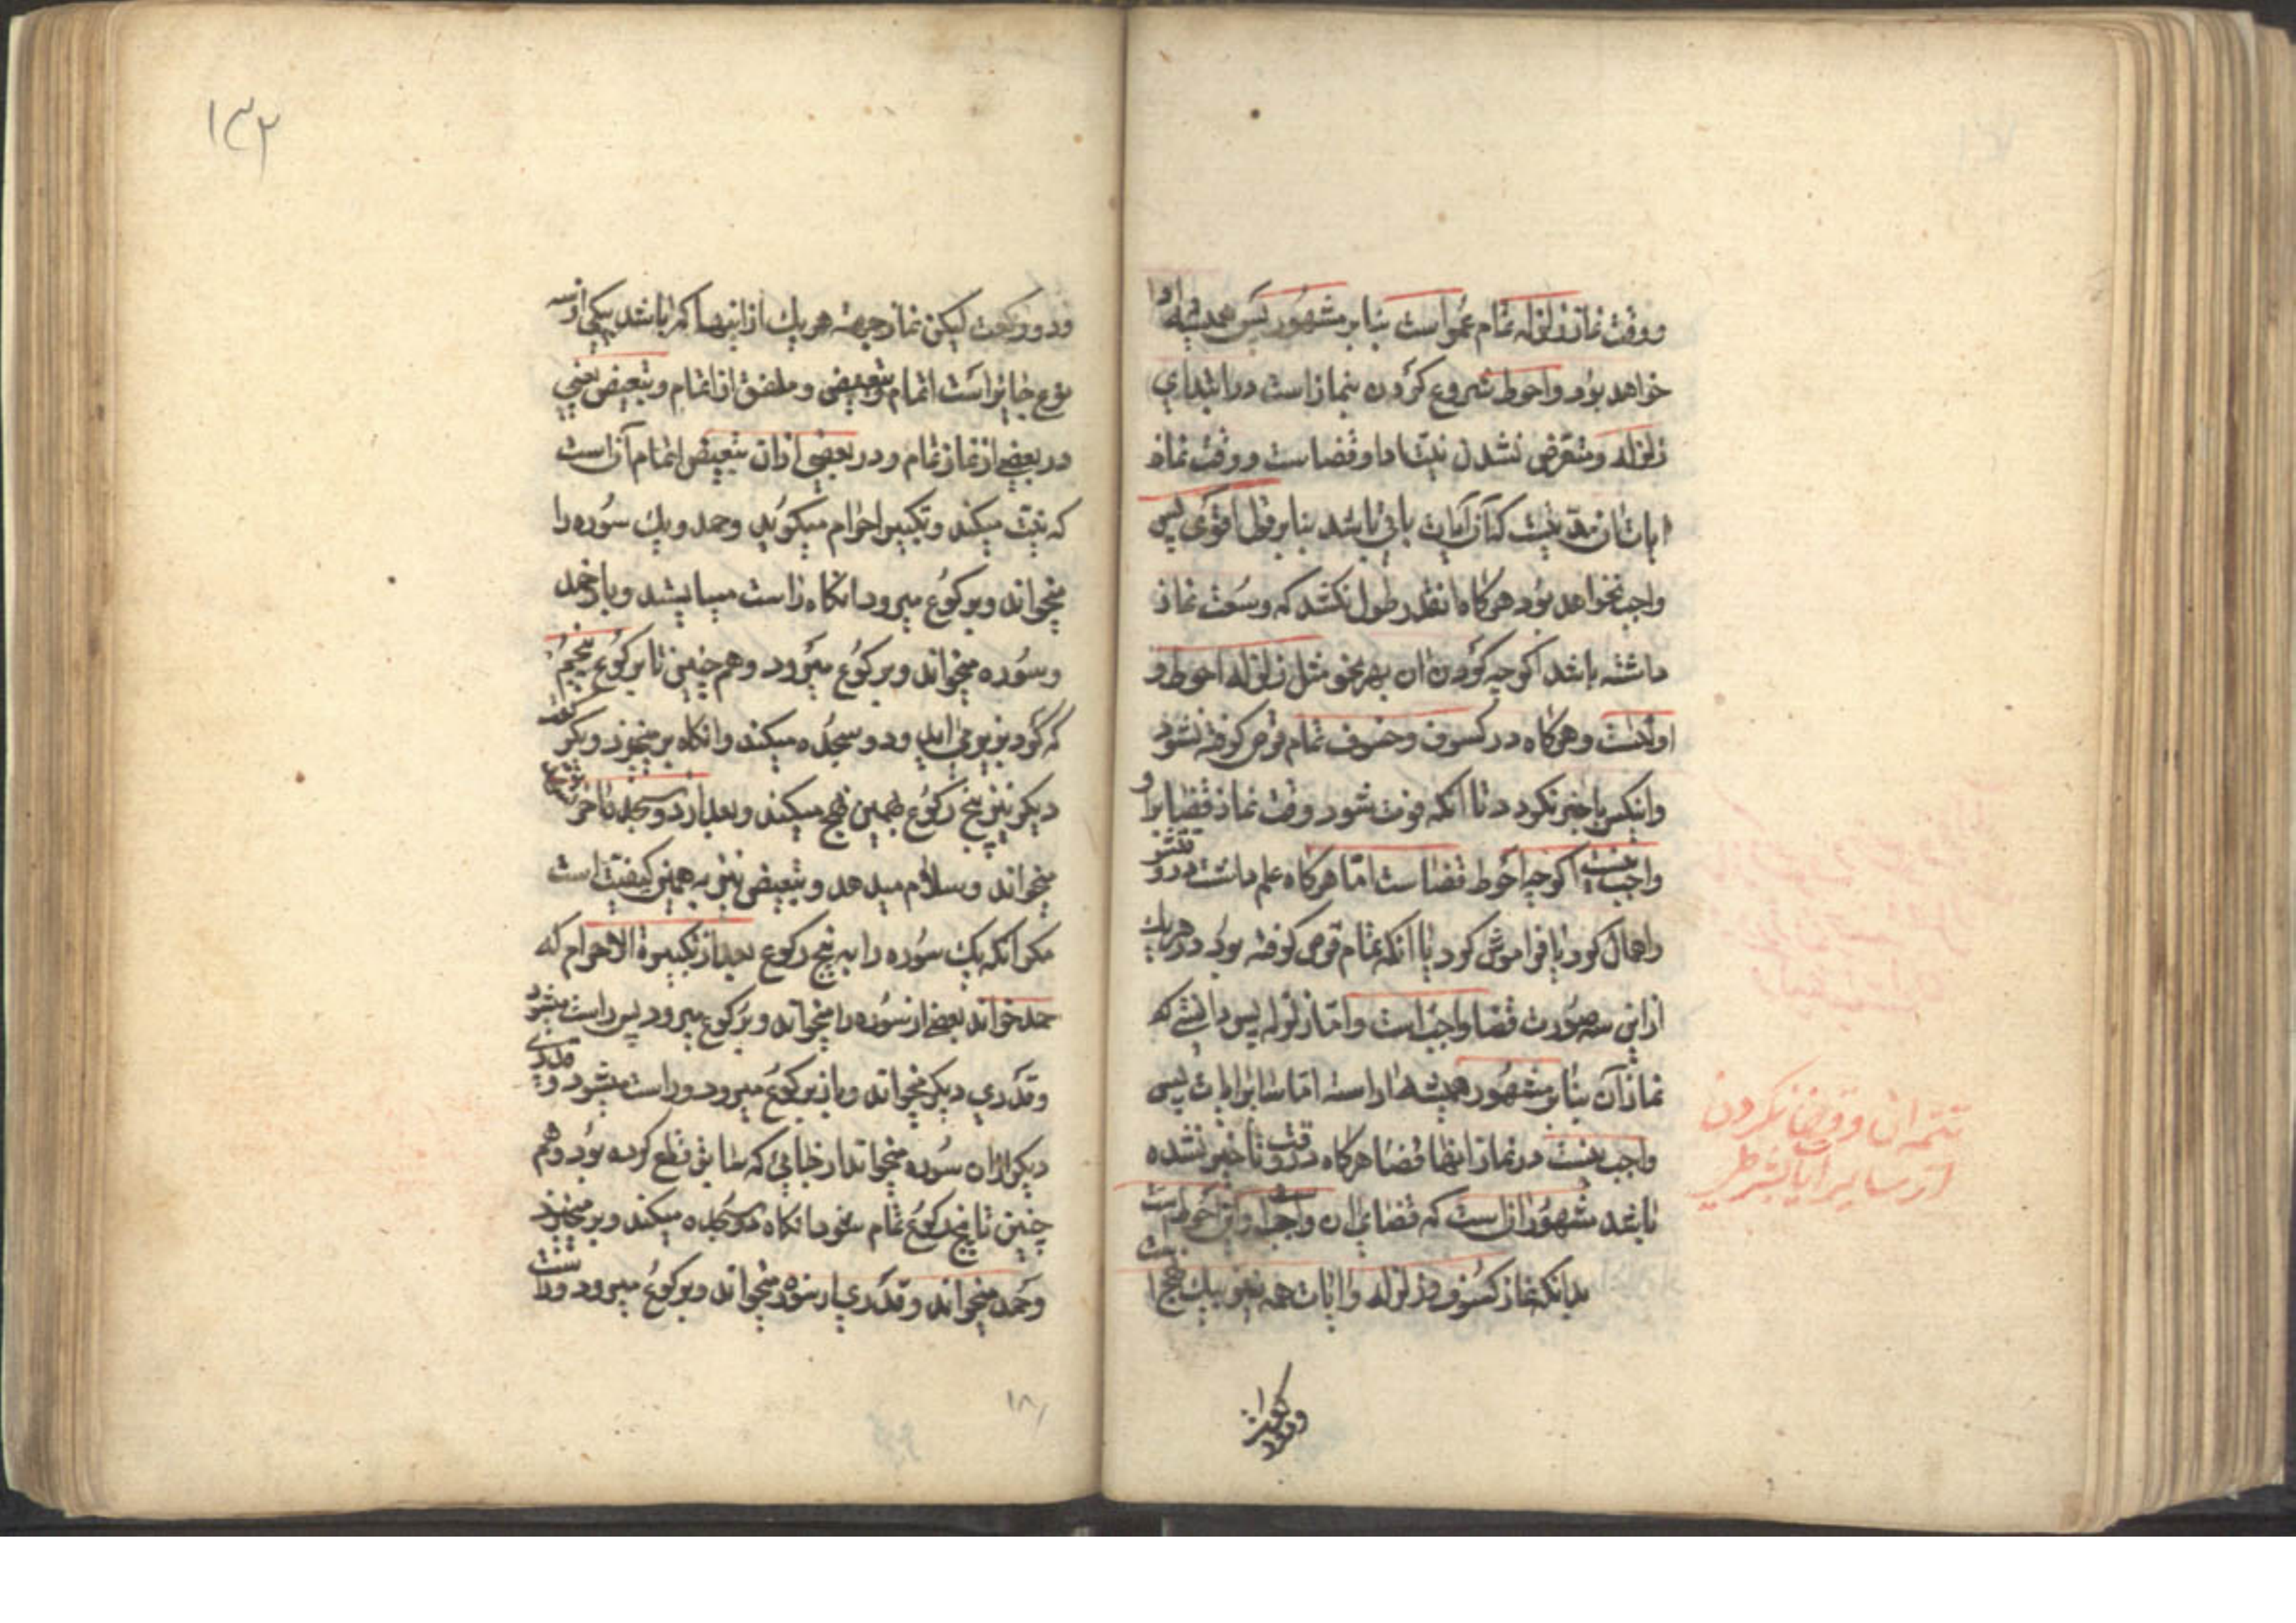 و وقت نماز زلزله تمام عمر است بنابر مشهور پس همیشه ادا
خواهد بود و احوط شروع کردن بنماز است در ابتدای
زلزله و متعرض نشدن نیت ادا و قضاست و وقت نماز
ایات ان مدتیست که آن آیات باقی باشد بنابر قول اقوی پس
واجب نخواهد بود هرکاه انقدر طول نکشد که وسعت نماز
داشته باشد اکرچه کردن ان بهر نحو مثل زلزله احوط و
اولیست و هرکاه در کسوف و خسوف تمام قرص کرفته نشود
و اینکس با خبر نکردد تا انکه فوت شود وقت نماز قضا بر او
واجب نیست اکرچه احوط قضاست اما هرکاه علم داشت در وقتش
و اهمال کرد یا فراموش کرد یا انکه تمام قرص کرفته بود در هر یک
از این سه صورت قضا واجب است و اما زلزله پس دانستی که
نماز آن بنابر مشهور همیشه ادا است اما سایر ایات پس
واجب نیست در نماز اینها قضا هرکاه در وقت با خبر نشده
باشد مشهور ان است که قضای ان واجب نیست و این احوط است
بدانکه نماز کسوف و زلزله و ایات همه بیک نهج است
و دو رکعت
تتمه ان و قضا نکردن
از سایر ایات بشرطی
۱۳۲
و دو رکعت لیکن نماز جهة هر یک از اینها که باشد بیکی از سه
نوع جایز است اتمام و تبعیض و ملفق از اتمام و تبعیض یعنی
در بعضی از نماز تمام و در بعضی از ان تبعیض اتمام آن است
که نیت میکند و تکبیر احرام میکوید و حمد و یک سوره را
میخواند و برکوع میرود انکاه راست میایستد و باز حمد
و سوره میخواند و برکوع میرود و همچنین تا برکوع پنجم
که کرد بزیر می اید و دو سجده میکند و انکاه بر میخیزد و یکرکعت
دیکر نیز پنج رکوع بهمین نهج میکند و بعد از دو سجده تا اخر تشهد
میخواند و سلام میدهد و تبعیض نیز به همین کیفیت است
مکر انکه یک سوره را به پنج رکوع بعد از تکبیرة الاحرام که
حمد خواند بعضی از سوره را میخواند و برکوع میرود پس راست میشود
و قدری دیکر میخواند و باز برکوع میرود و راست میشود و قدری
دیکر از ان سوره میخواند از جایی که سابق قطع کرده بود و هم
چنین تا پنج رکوع تمام شود انکاه دو سجده میکند و بر میخیزد
و حمد میخواند و قدری از سوره میخواند و برکوع میرود و راست